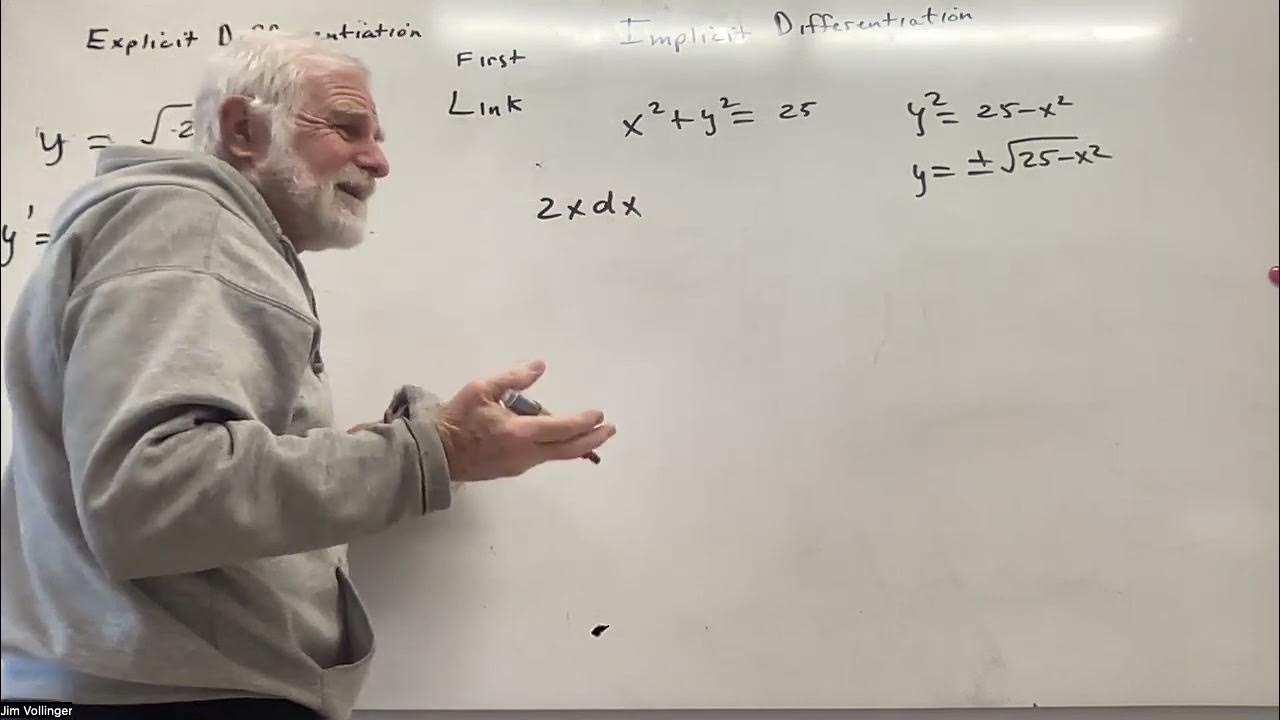 Explicit D
ntiation
y = √-2
y' =
First
Link
Implicit Differentiation
x² + y² = 25
2xdx
y² = 25-x²
y = ±√25-x²
Jim Vollinger